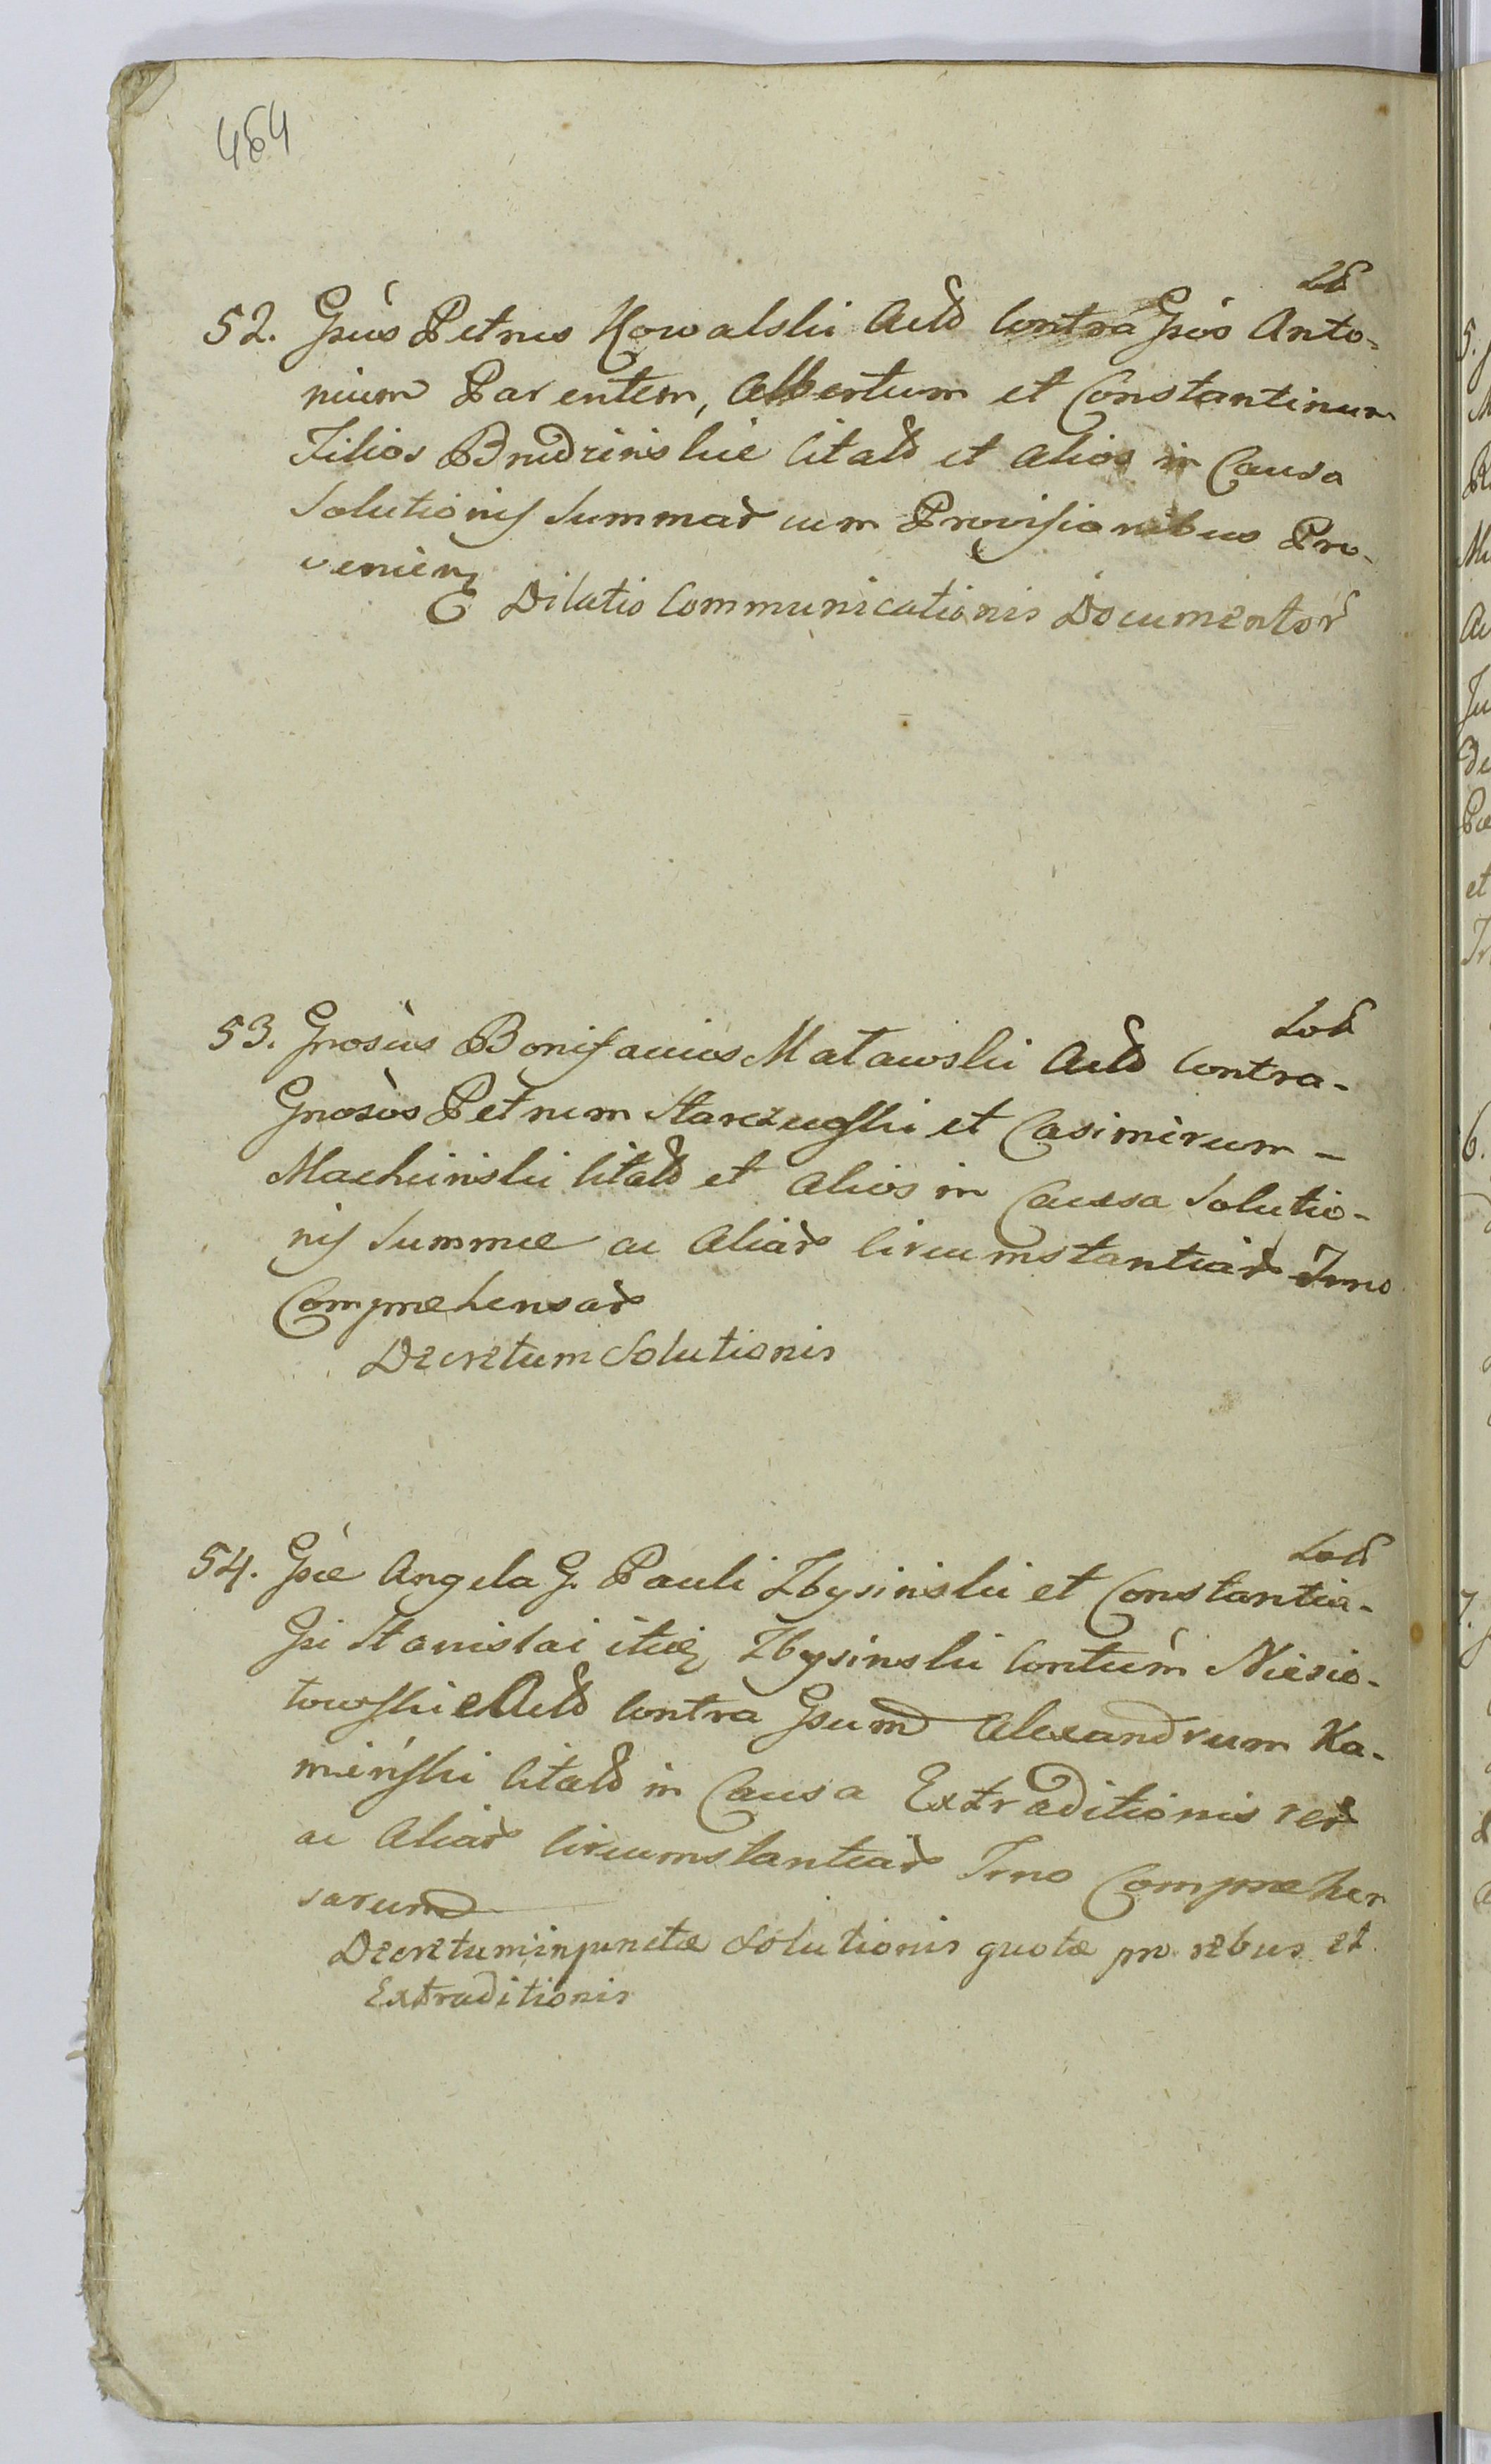 464
52. Gsus Petrus Kowalski Actd Contra Gsos Anto-
nium Parentem, Albertum et Constantinum
Filios Brudzinskie Citatd et Alios in Causa
Solutionis Summar cum Provisionibus Pro-
venien
Dilatio Communicationis Documentor
53. Gnosus Bonifacius Matawski Actd Contra-
Gnosos Petrum Starczewski et Casimirum -
Machcinski Citatd et Alios in Caussa Solutio-
nis Summae ac Aliar Circumstantiar Tmno
Compraehensar
Decretum Solutionis
54. Gsae Angela G. Pauli Zbysinski et Constantia-
Gsi Stanislai itidq Zbysinski Contum Niesio-
towskie Actd Contra Gsum Alexandrum Ka-
mieński Citatd in Causa Extraditionis rer
ac Aliar Circumstantiar Tmno Compraehen
sarum
Decretum injunctae Solutionis quotae pro rebus et
Extraditionis